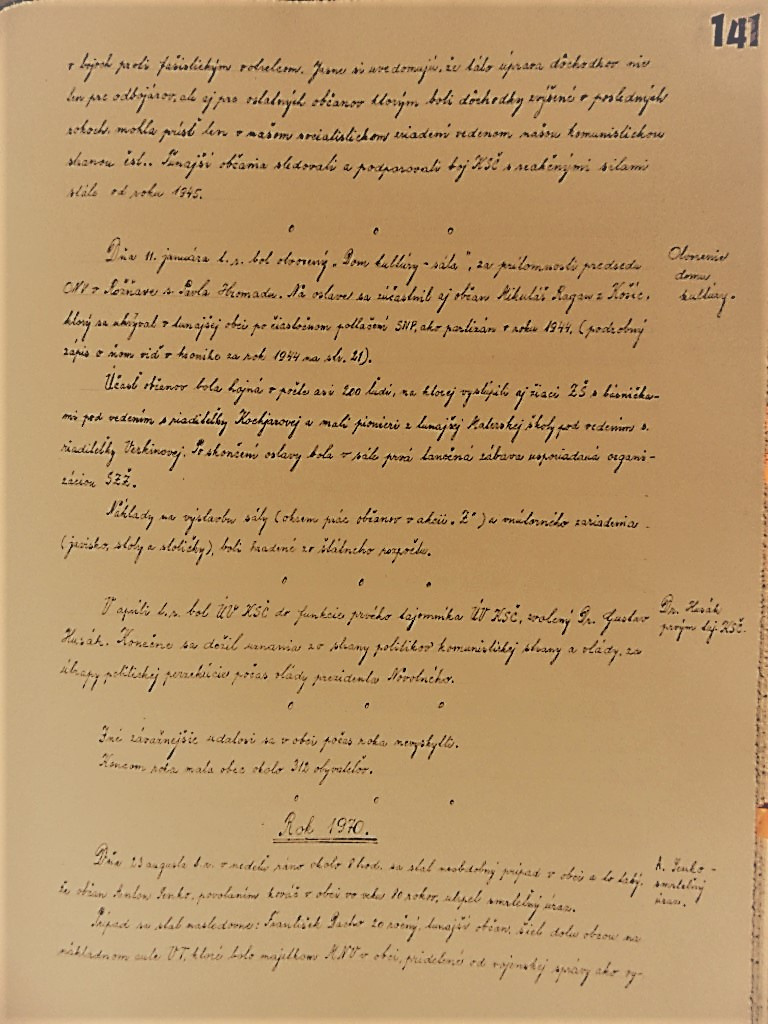 141
v bojoch proti fašistickým votrelcom. Jasne si uvedomujú, že táto úprava dôchodkov nie
len pre odbojárov, ale aj pre ostatných občanov ktorým boli dôchodky zvýšené v posledných
rokoch, mohla prísť len v našom socialistickom zriadení vedenom našou komunistickou
stranou čsl.. Tunajší občania sledovali a podporovali boj KSČ s reakčnými silami
stále od roku 1945.
Dňa 11. januára t. r. bol otvorený „Dom kultúry - sála", za prítomnosti predsedu
ONV v Rožňave s. Pavla Hromadu. Na oslave sa zúčastnil aj občan Mikuláš Ragan z Košíc,
ktorý sa ukrýval v tunajšej obci po čiastočnom potlačení SNP, ako partizán v roku 1944. (podrobný
zápis o ňom viď v kronike za rok 1944 na str. 21).
Otvorenie
domu
kultúry.
Účasť občanov bola hojná v počte asi 200 ľudí, na ktorej vystúpili aj žiaci ZŠ s básnička-
mi pod vedením s. riaditeľky Kochjarovej a malí pionieri z tunajšej Materskej školy, pod vedením s.
riaditeľky Verkinovej. Po skončení oslavy bola v sále prvá tanečná zábava usporiadaná organi-
záciou SZŽ.
Náklady na výstavbu sály (okrem prác občanov v akcii „Z") a vnútorného zariadenia -
(javisko, stoly a stoličky), boli hradené zo štátneho rozpočtu.
V apríli t. r. bol ÚV KSČ do funkcie prvého tajomníka ÚV KSČ, zvolený Dr. Gustav
Husák. Konečne sa dožil uznania zo strany politikov komunistickej strany a vlády, za
útrapy politickej perzekúcie počas vlády prezidenta Novotného.
Dr. Husák
prvým taj. KSČ.
Iné závažnejšie udalosi sa v obci počas roka nevyskytli.
Koncom roka mala obec okolo 312 obyvateľov.
Rok 1970.
Dňa 23 augusta t. r. v nedeľu ráno okolo 8 hod. sa stal neobdobný prípad v obci a to taký,
že občan Anton Jenko, povolaním kováč v obci vo veku 80 rokov, utrpel smrteľný úraz.
A. Jenko -
smrteľný
úraz.
Prípad sa stal nasledovne: František Dacho 20 ročný, tunajší občan, šiel dolu obcou na
nákladnom aute VT, ktoré bolo majetkom MNV v obci, pridelené od vojenskej správy ako vy-